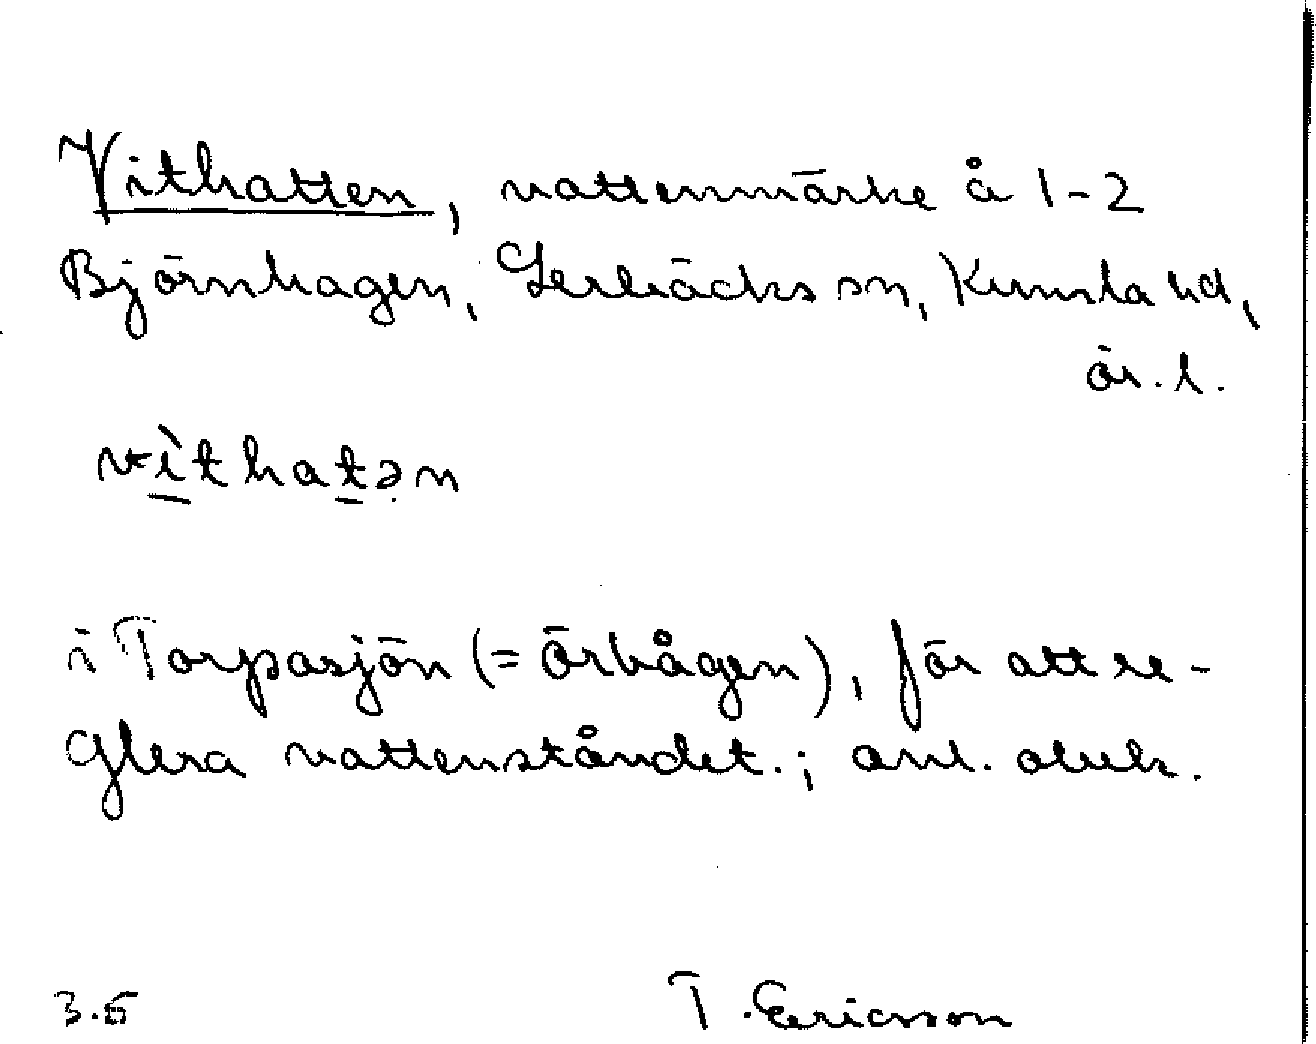 Vithatten, vattenmärke å 1-2
Björnhagen, Lerbäcks sn, Kumla hd,
ör. l.
vìthatən
i Torpasjön (= Örbågen), för att re-
glera vattenståndet.; anl. obek.
3.6
T. Ericsson